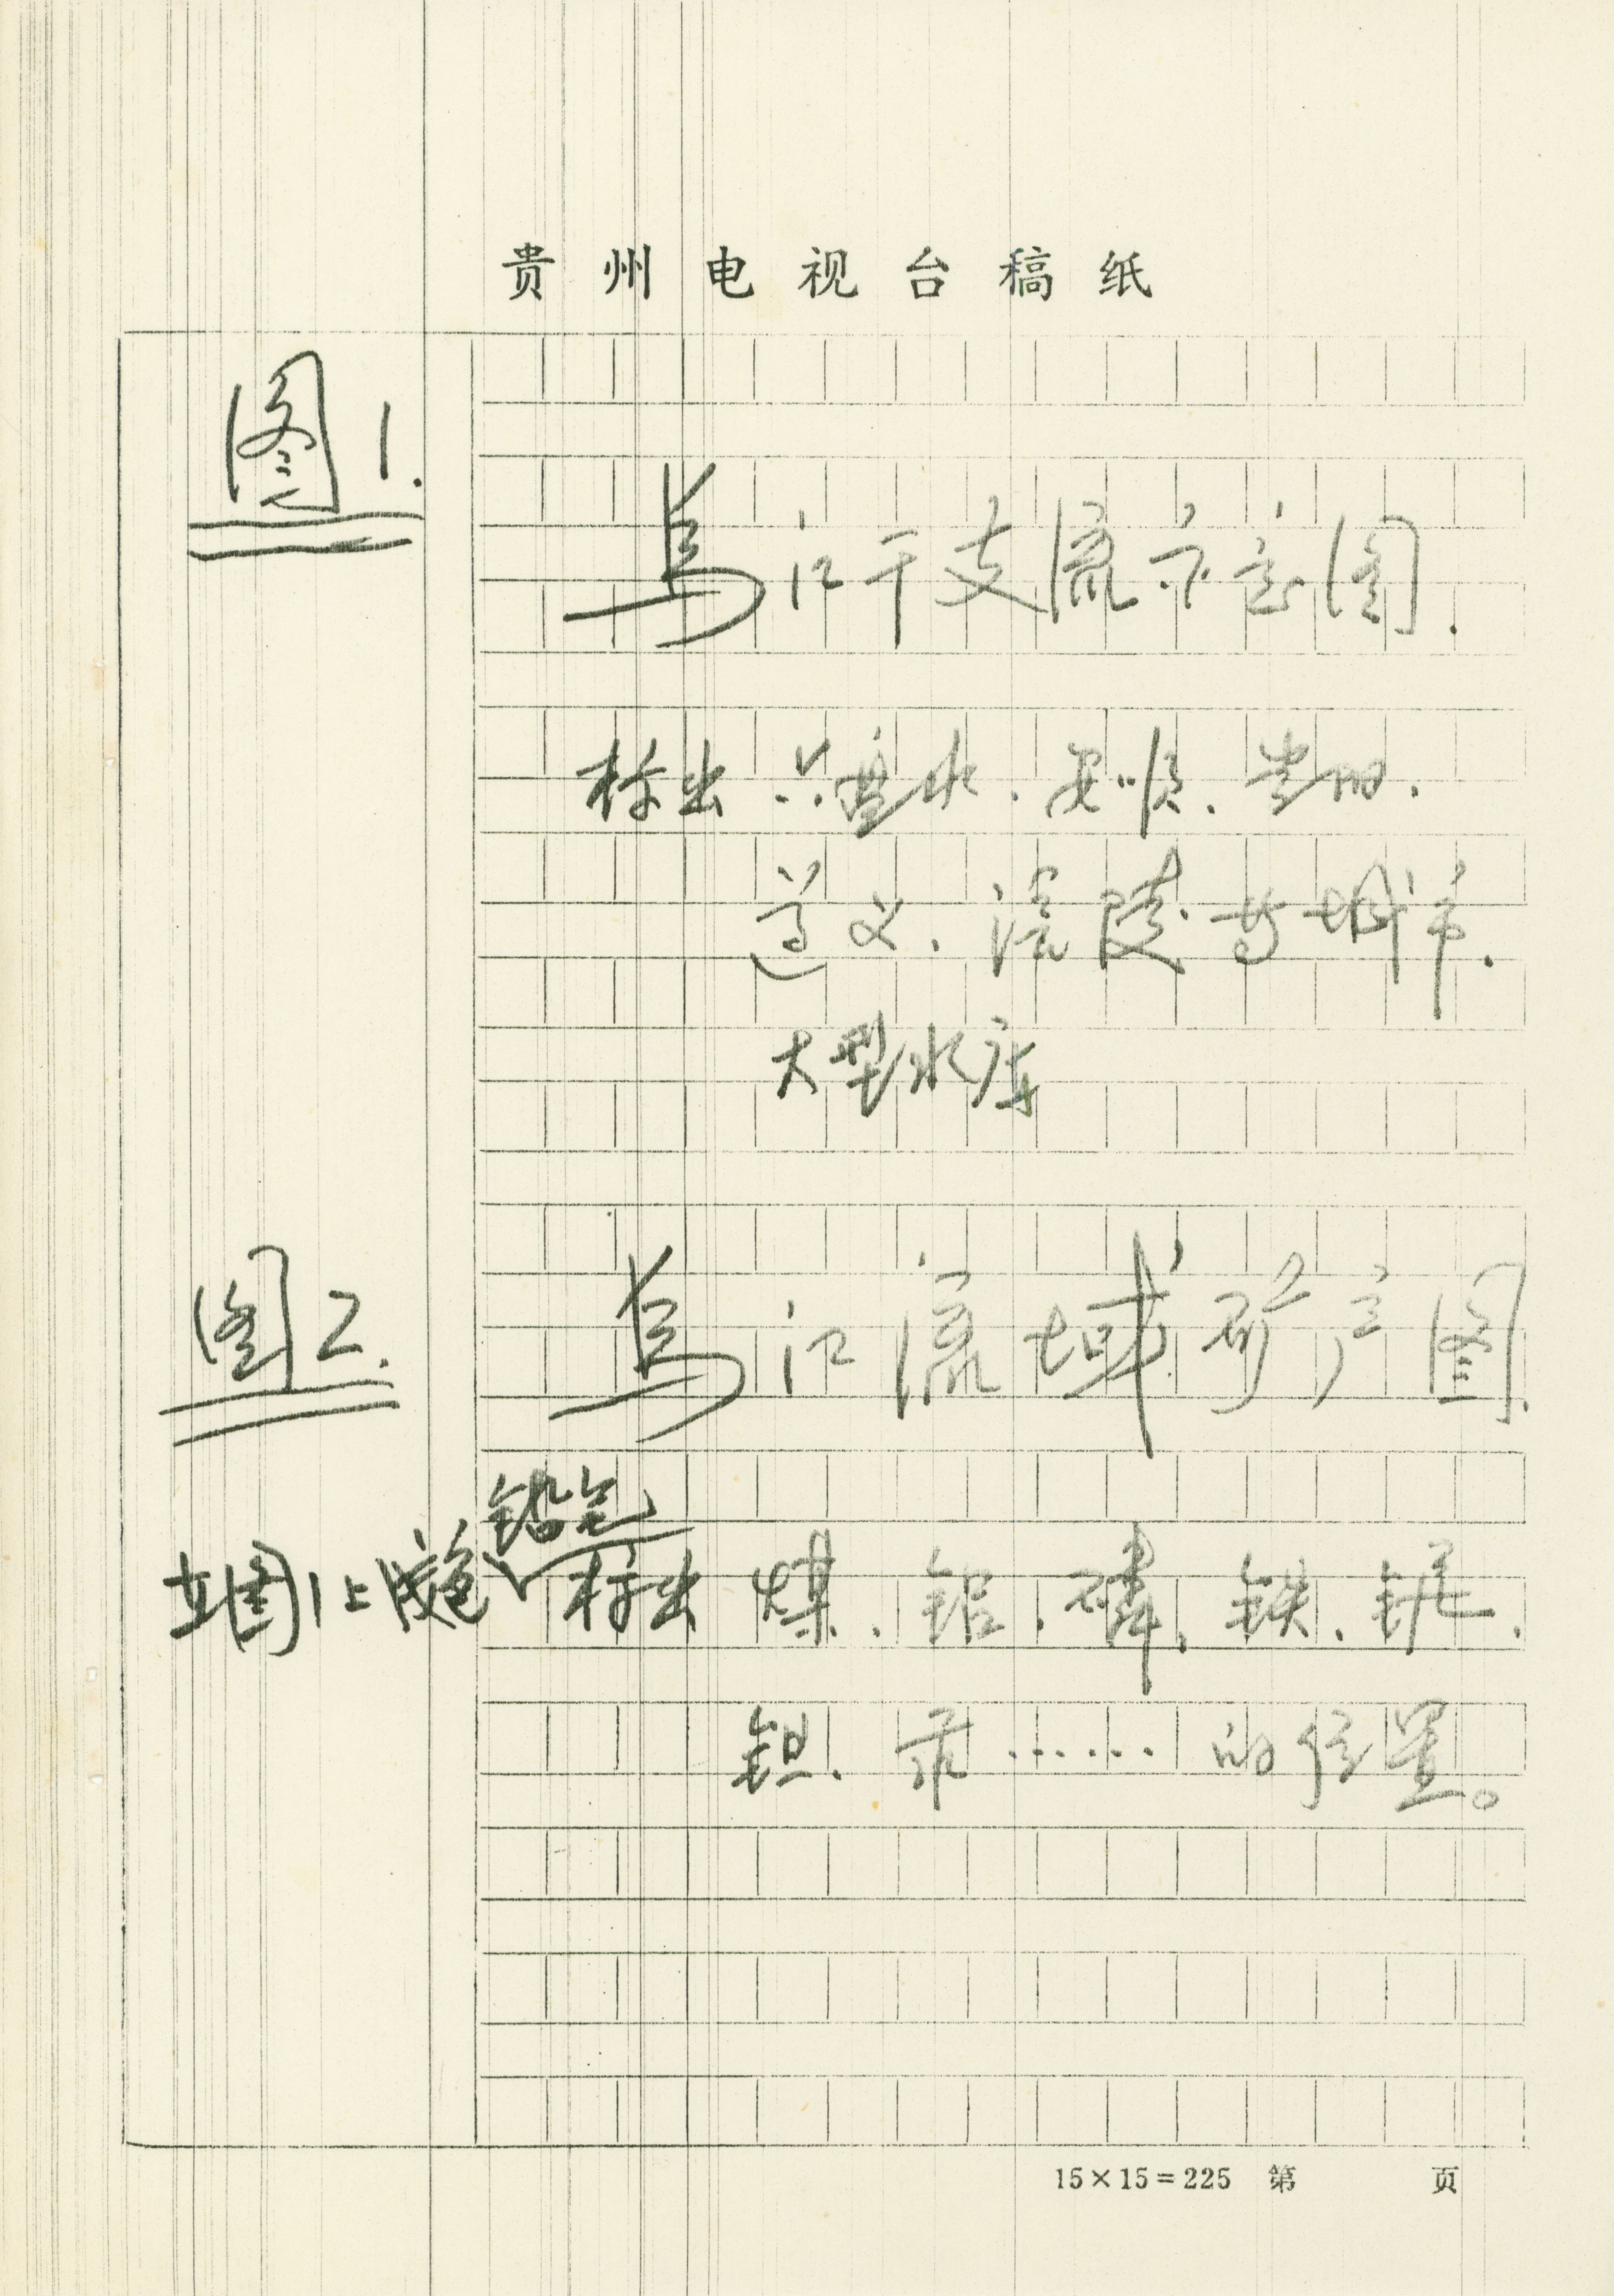 贵州电视台稿纸
图1.
乌江干支流示意图.
标出 六盘水.安顺.贵阳.
遵义.涪陵等城市.
大型水库
图2.
乌江流域矿产图.
铅笔
在图1上用色标出 煤.铝.磷.铁.锰.
钡.汞……的位置。
15×15=225 第 页